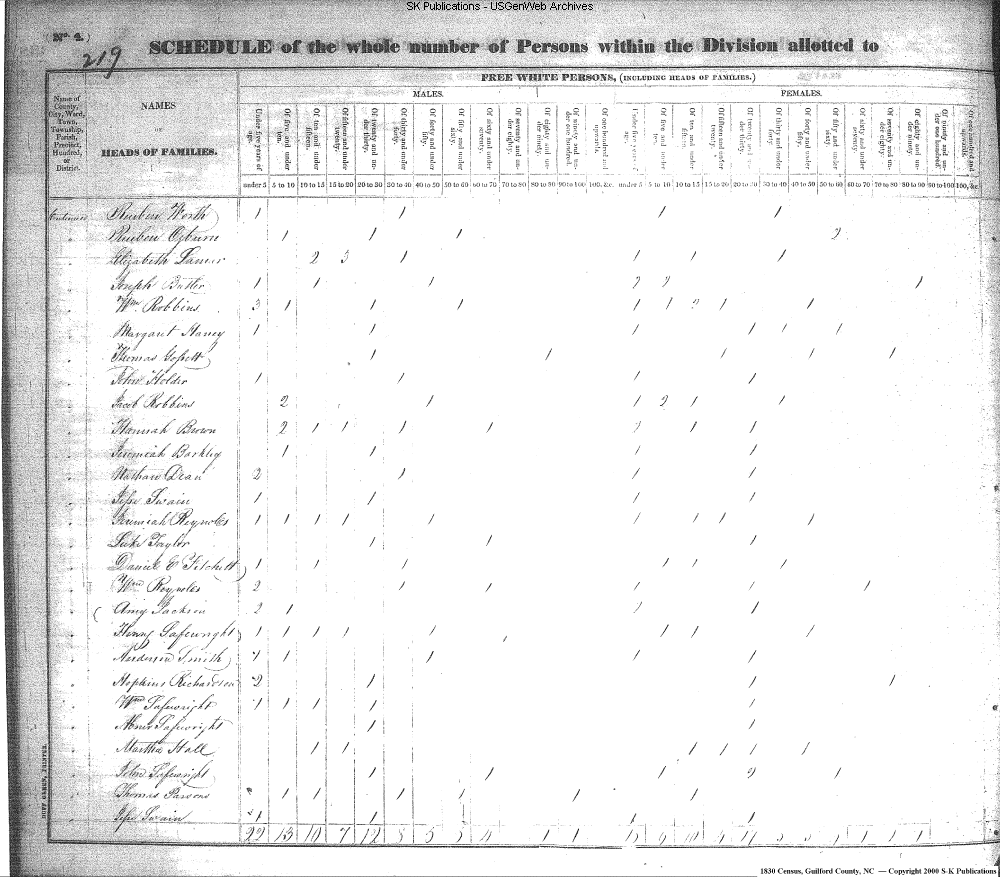 SK Publications - USGenWeb Archives
(No. 4.)
219
SCHEDULE of the whole number of Persons within the Division allotted to
FREE WHITE PERSONS, (INCLUDING HEADS OF FAMILIES.)
MALES. FEMALES.
Name of County, City, Ward, Town, Township, Parish, Precinct, Hundred, or District.
NAMES
OF
HEADS OF FAMILIES.
Under five years of age. Of five and under ten. Of ten and under fifteen. Of fifteen and under twenty. Of twenty and under thirty. Of thirty and under forty. Of forty and under fifty. Of fifty and under sixty. Of sixty and under seventy. Of seventy and under eighty. Of eighty and under ninety. Of ninety and under one hundred. Of one hundred and upwards. Under five years of age. Of five and under ten. Of ten and under fifteen. Of fifteen and under twenty. Of twenty and under thirty. Of thirty and under forty. Of forty and under fifty. Of fifty and under sixty. Of sixty and under seventy. Of seventy and under eighty. Of eighty and under ninety. Of ninety and under one hundred. Of one hundred and upwards.
under 5 5 to 10 10 to 15 15 to 20 20 to 30 30 to 40 40 to 50 50 to 60 60 to 70 70 to 80 80 to 90 90 to 100 100, &c. under 5 5 to 10 10 to 15 15 to 20 20 to 30 30 to 40 40 to 50 50 to 60 60 to 70 70 to 80 80 to 90 90 to 100 100, &c.
Continued Reuben Worth 1 1 1 1
Reuben Ozburn 1 1 1 2
Elizabeth Lamar 2 3 1 1 1 1
Joseph Butler 1 1 1 2 2 1
Wm Robbins 3 1 1 1 1 1 2 1 1
Margaret Haney 1 1 1 1 1 1
Thomas Gossett 1 1 1 1 1
John Holder 1 1 1 1
Jacob Robbins 2 1 1 2 1 1
Hannah Brown 2 1 1 1 1 1 1
Jeremiah Barkley 1 1 1 1
Nathan Dean 2 1 1 1
Jesse Swain 1 1 1 1
Jeremiah Reynolds 1 1 1 1 1 1 1 1 1
Luke Taylor 1 1 1
Daniel E Fitchett 1 1 1 1 1 1
Wm Reynolds 2 1 1 1 1 1
Amy Jackson 2 1 1 1
Henry Safewright 1 1 1 1 1 1 1 1
Anderson Smith 1 1 1 1 1
Hopkins Richardson 2 1 1 1
Wm Safewright 1 1 1 1 1
Abner Safewright 1 1
Martha Hall 1 1 1 1 1 1
John Safewright 1 1 1 2 1
Thomas Parsons 1 1 1 1 1 1
Jesse Swain 1 1 1 1
22 13 10 7 12 8 5 4 1 1 9 10 4 1 1 1
DUFF GREEN, PRINTER.
1830 Census, Guilford County, NC — Copyright 2000 S-K Publications